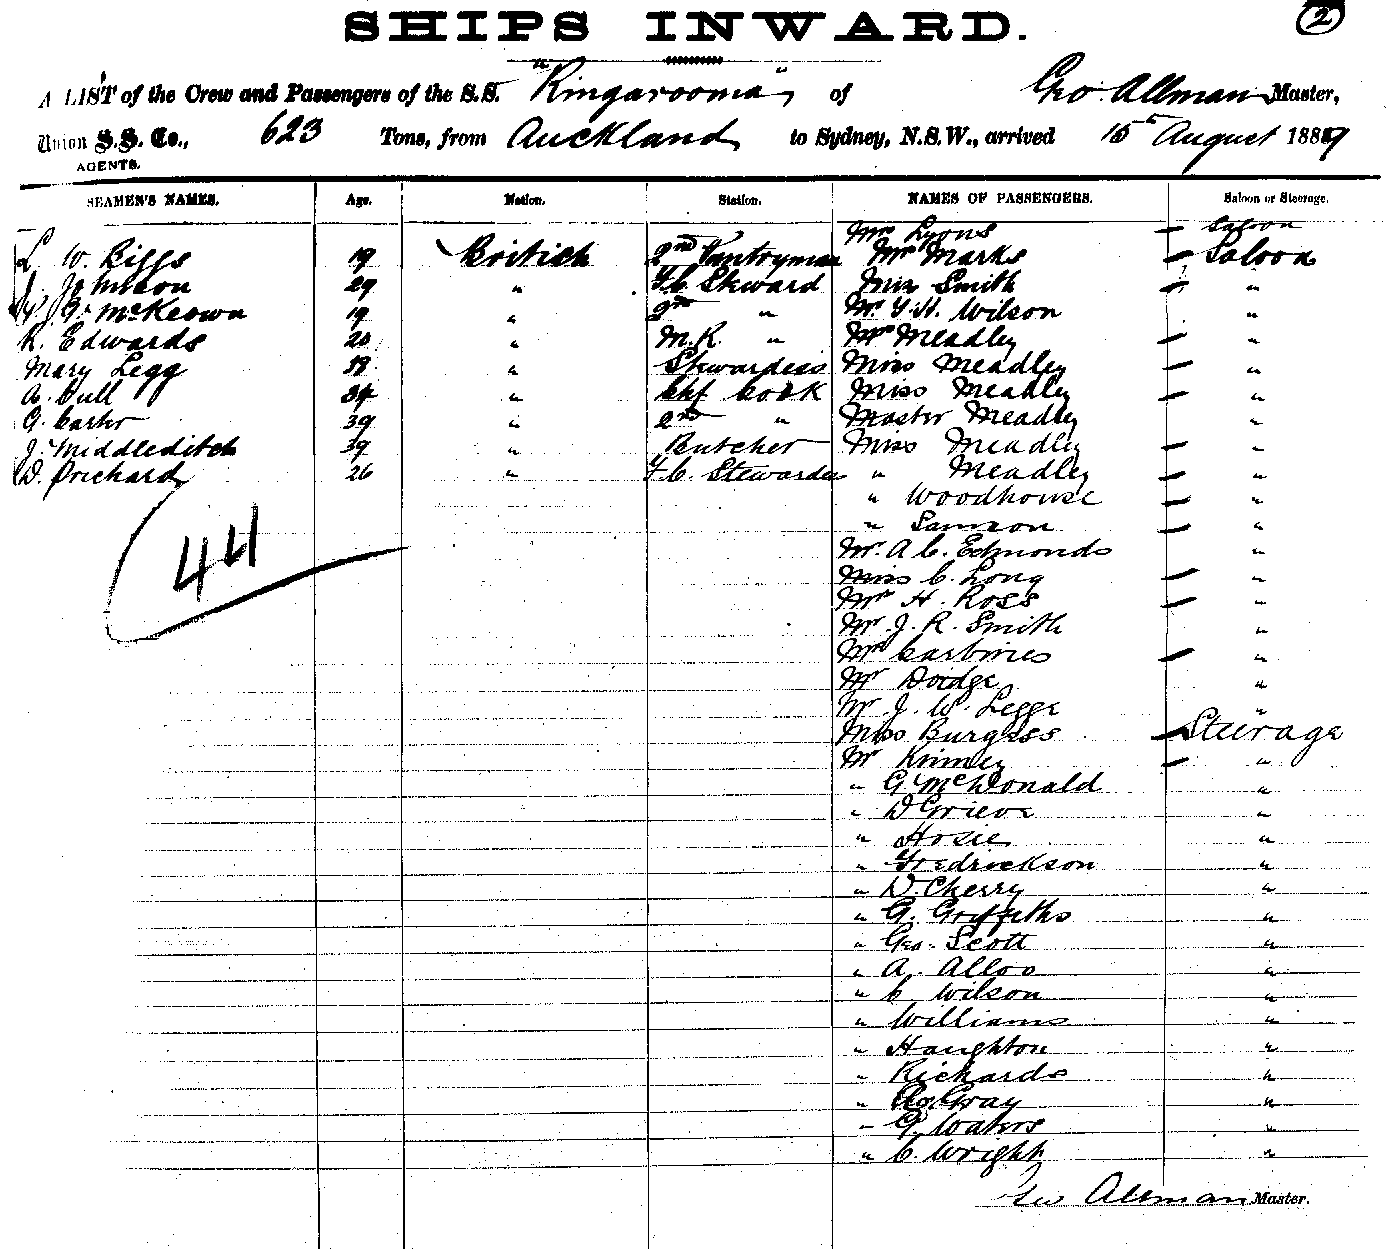 SHIPS INWARD.
2
A LIST of the Crew and Passengers of the S.S. "Ringarooma", of Geo. Allman Master,
Union S.S. Co., 623 Tons, from Auckland to Sydney, N.S.W., arrived 15th August 1889
AGENTS.
SEAMEN'S NAMES. Age. Nation. Station. NAMES OF PASSENGERS. Saloon or Steerage.
Mrs Lyons Saloon
W. Biggs 19 British 2nd Pantryman Mrs Marks Saloon
Johnson 29 " F.C. Steward Miss Smith "
J. McKeown 19 " 2nd " Mr Y.H. Wilson "
R. Edwards 20 " M.R. " Mrs Meadley "
Mary Legg 38 " Stewardess Miss Meadley "
A. Dull 34 " Chf Cook Miss Meadley "
G. Carter 39 " 2nd " Master Meadley "
J. Middleditch 39 " Butcher Miss Meadley "
D. Prichard 26 " F.C. Stewardess " Meadley "
" Woodhouse "
" Samson "
44
Mr. A C. Edmonds "
Miss C. Long "
Mrs H. Ross "
Mr. J. R. Smith "
Mrs Carbines "
Mr Doidge "
Mr. J. W. Legge "
Miss Burgess Steerage
Mr "
" G McDonald "
" D Grieve "
" Hosie "
" Fredrickson "
" D. Cherry "
" G. Griffiths "
" Geo. Scott "
" A. Alloo "
" C Wilson "
" Williams "
" Haughton "
" Richards "
" Gray "
" G. Waters "
" C. Wright "
Geo Allman Master.